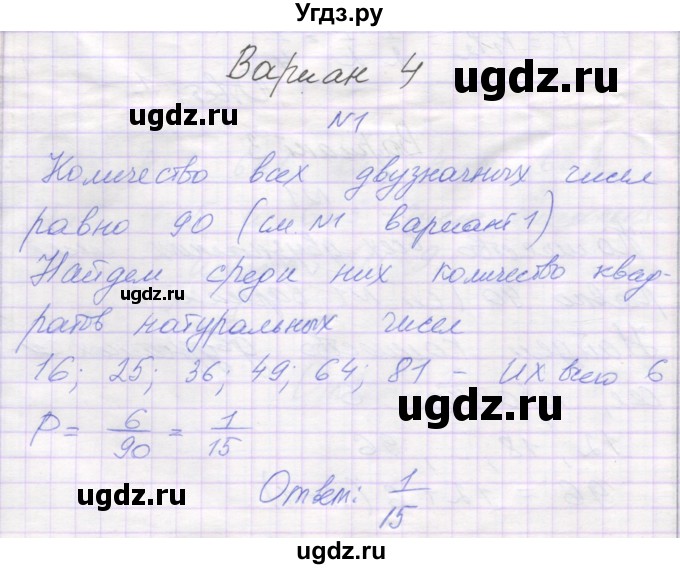 Угдз.ру
Вариан 4
ugdz.ru
ugdz.ru
№1
Количество всех двузначных чисел
равно 90 (см. №1 вариант 1)
Найдем среди них количество квад-
ugdz.ru
ратов натуральных чисел
16; 25; 36; 49; 64; 81 - их всего 6
ugdz.ru
P = 6/90 = 1/15
ugdz.ru
Ответ: 1/15
ugdz.ru